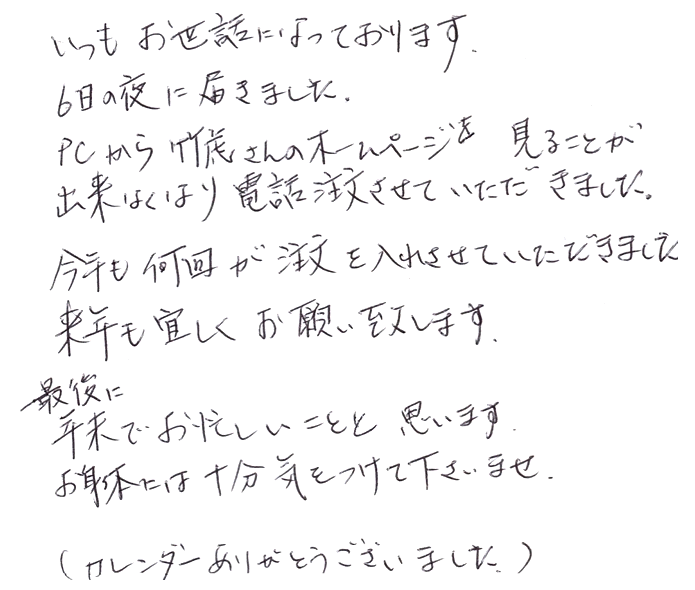 いつもお世話になっております.
6日の夜に届きました.
PCから竹虎さんのホームページを 見ることが
出来なくなり 電話注文させていただきました。
今年も 何回か 注文を入れさせていただきました
来年も宜しくお願い致します.
最後に
年末でお忙しいことと 思います.
お身体には十分気をつけて下さいませ.
(カレンダーありがとうございました.)